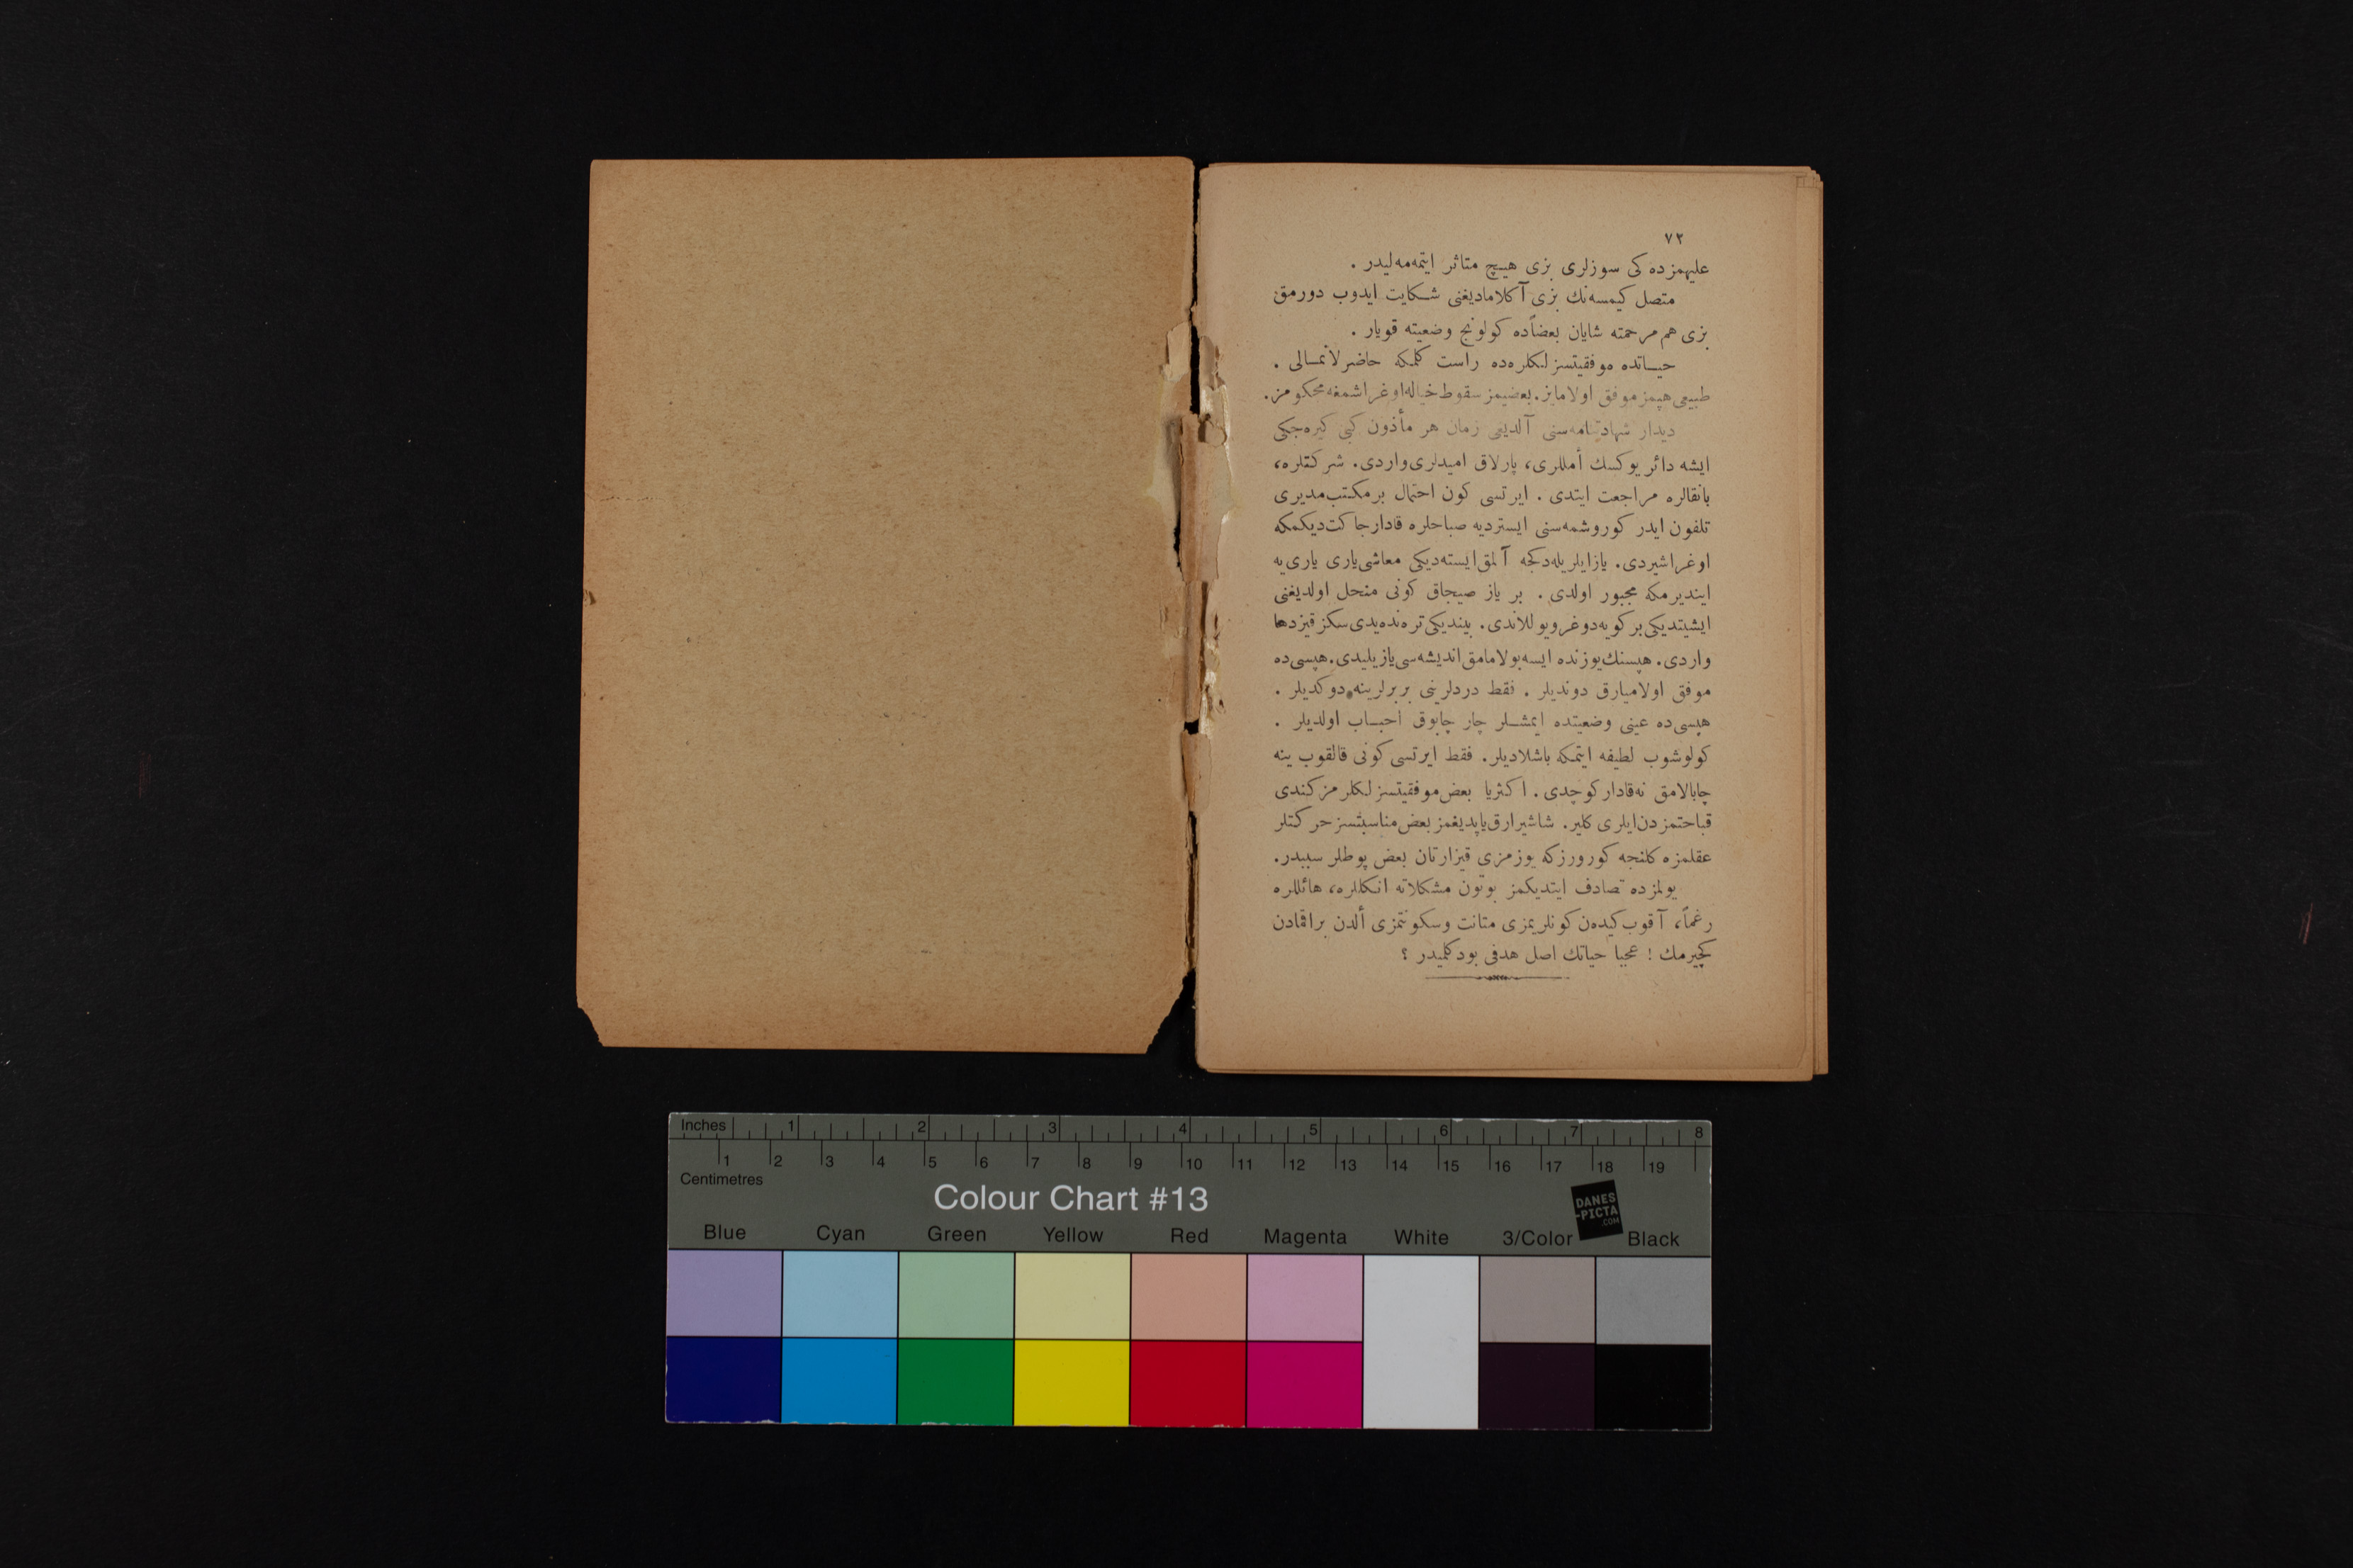 ٧٢
علیهمزده کی سوزلری بزی هیچ متاثر ایتمه‌مه‌لیدر .
متصل کیمسه‌نك بزی آکلامادیغنی شکایت ایدوب دورمق
بزی هم مرحمته شایان بعضاًده کولونج وضعیته قویار .
حیاتده موفقیتسزلکلره‌ده راست کلمکه حاضرلانمالی .
طبیعی هپمز موفق اولامایز. بعضیمز سقوط خیاله اوغراشمغه محکومز.
دیدار شهادتنامه‌سنی آلدیغی زمان هر مأذون کبی کیره‌جکی
ایشه دائر یوکسك أمللری، پارلاق امیدلری واردی. شرکتلره،
بانقالره مراجعت ایتدی . ایرتسی کون احتمال بر مکتب مدیری
تلفون ایدر کوروشمه‌سنی ایستر دیه صباحلره قادار جاکت دیکمکه
اوغراشیردی. یاز ایلریله‌دکجه آلمق ایسته‌دیکی معاشی یاری یاری‌یه
ایندیرمکه مجبور اولدی . بر یاز صیجاق کونی منحل اولدیغنی
ایشیتدیکی بر کویه دوغرو یوللاندی. بیندیکی ترەنده یدی سکز قیز دها
واردی. هپسنك یوزنده ایسه بولامامق اندیشه‌سی یازیلیدی. هپسی ده
موفق اولامیارق دوندیلر . فقط دردلرینی بربرلرینه دوکدیلر .
هپسی ده عینی وضعیتده ایمشلر چار چابوق احباب اولدیلر .
کولوشوب لطیفه ایتمکه باشلادیلر. فقط ایرتسی کونی قالقوب ینه
چابالامق نه قادار کوچدی . اکثریا بعض موفقیتسزلکلرمز کندی
قباحتمزدن ایلری کلیر. شاشیرارق یاپدیغمز بعض مناسبتسز حرکتلر
عقلمزه کلنجه کورورزکه یوزمزی قیزارتان بعض پوطلر سببدر.
یولمزده تصادف ایتدیکمز بوتون مشکلاته انکللره، هائللره
رغماً، آقوب کیده‌ن کونلریمزی متانت وسکونتمزی ألدن براقمادن
کچیرمك ! عجبا حیاتك اصل هدفی بودکلمیدر ؟
Inches 1 2 3 4 5 6 7 8
1 2 3 4 5 6 7 8 9 10 11 12 13 14 15 16 17 18 19
Centimetres
Colour Chart #13
DANES
-PICTA
.COM
Blue Cyan Green Yellow Red Magenta White 3/Color Black